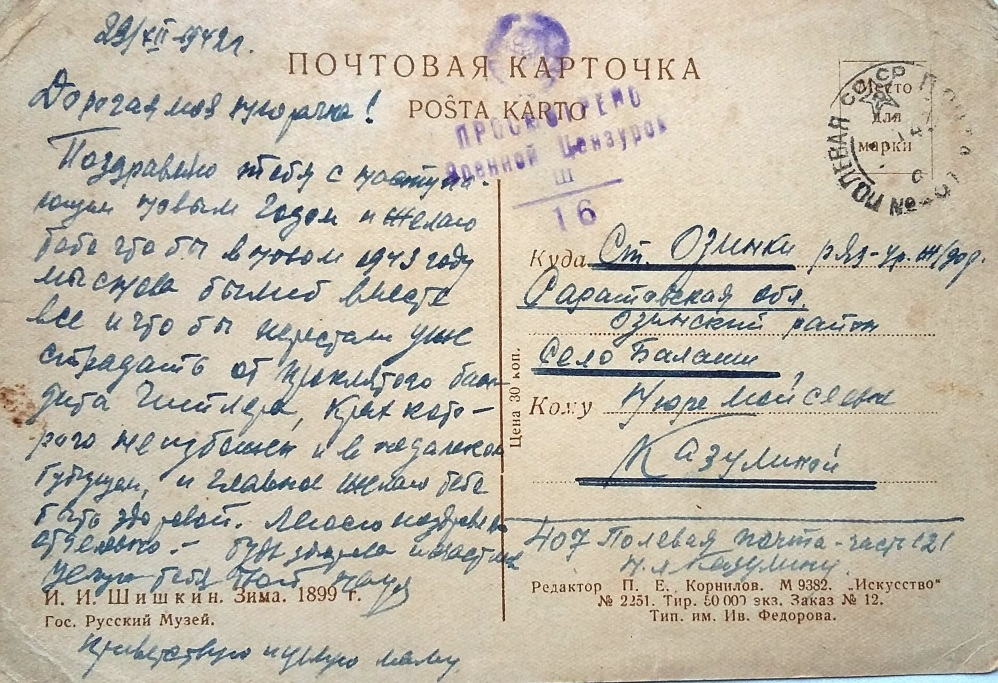 29/XII-1942г.
ПОЧТОВАЯ КАРТОЧКА
POŜTA KARTO
ПРОСМОТРЕНО
Военной Цензурой
III
16
ПОЛЕВАЯ
ПОЧТА
№
Место
для
марки
Дорогая моя Нюрочка!
Поздравляю тебя с наступа-
ющим новым годом и желаю
тебе что бы в новом 1943 году
мы снова были б вместе
все и что бы перестали уже
страдать от проклятого бан-
дита Гитлера, крах кото-
рого неизбежен и в недалеком
будущем, и главное желаю тебе
быть здоровой.
отдельно.- Будь здорова и счастлива
Целую тебя твой
Приветствую и целую маму.
Куда Ст. Озинки ряз-ур. ж/дор.
Саратовская обл.
Озинский район
Село Балаши
Кому Нюре Мойсеевне
Казулиной
407 Полевая почта-часть 121
Казулин
Цена 30 коп.
И. И. Шишкин. Зима. 1899 г.
Гос. Русский Музей.
Редактор П. Е. Корнилов. М 9382. „Искусство"
№ 2251. Тир. 50 000 экз. Заказ № 12.
Тип. им. Ив. Федорова.